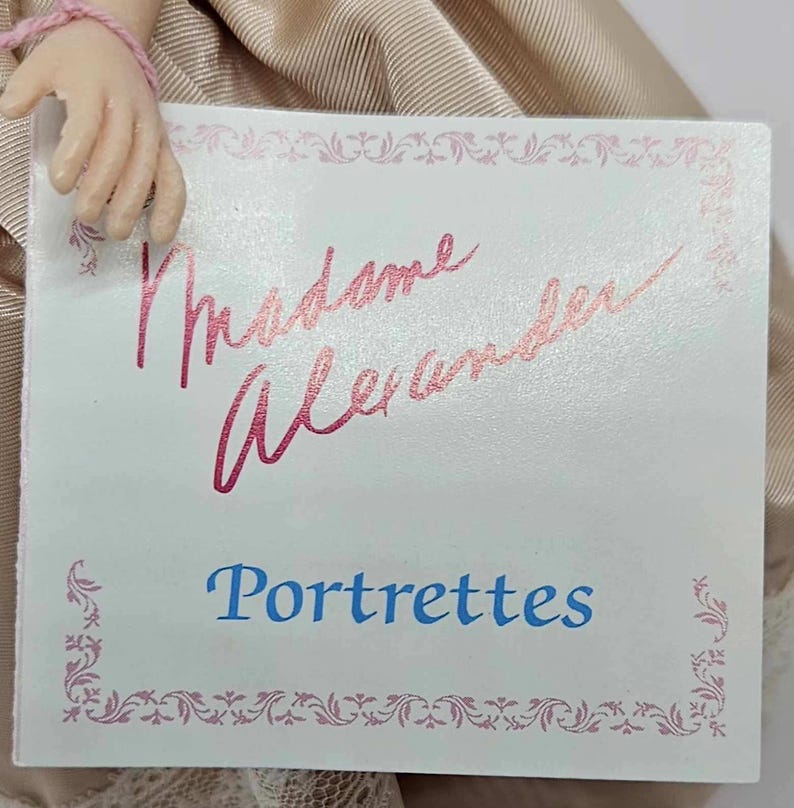 Madame
Alexander
Portrettes